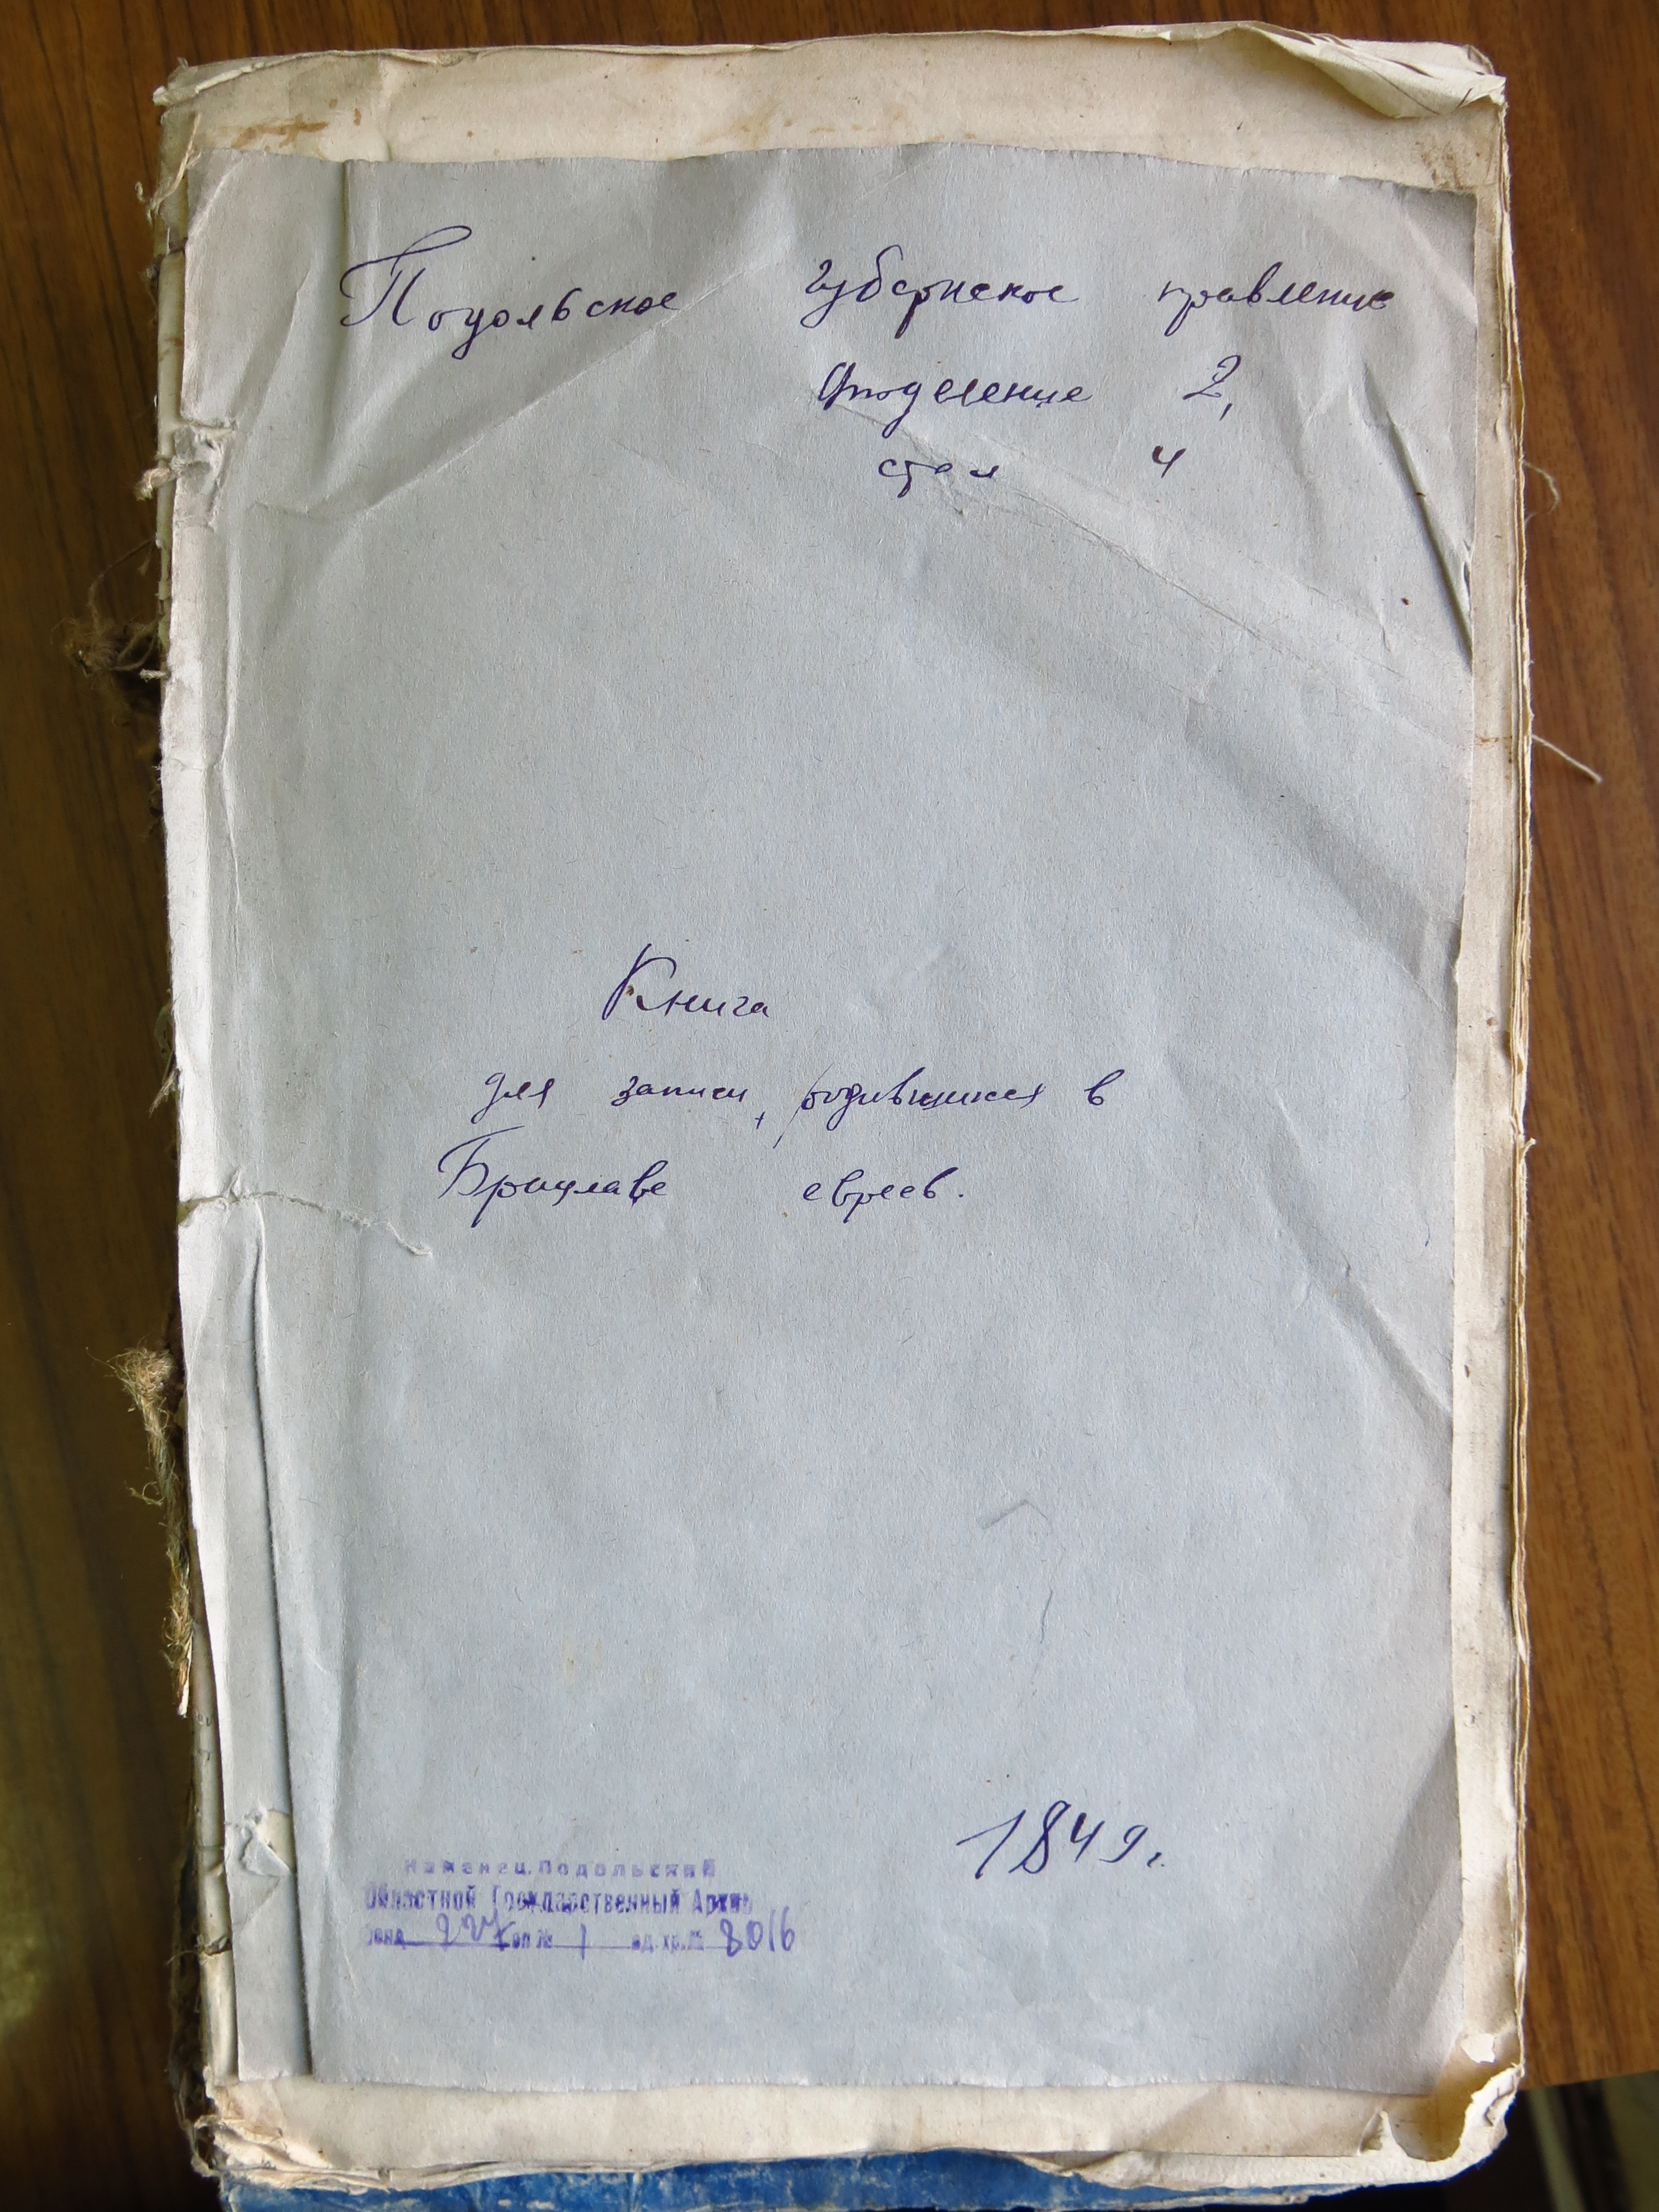 Подольское губернское правление
Отделение 2,
стол 4
Книга
для записи родившихся в
Брацлаве евреев.
1849г.
Каменец.Подольский
Областной Государственный Архив
Фонд 227 оп № 1 ед.хр.№ 8016